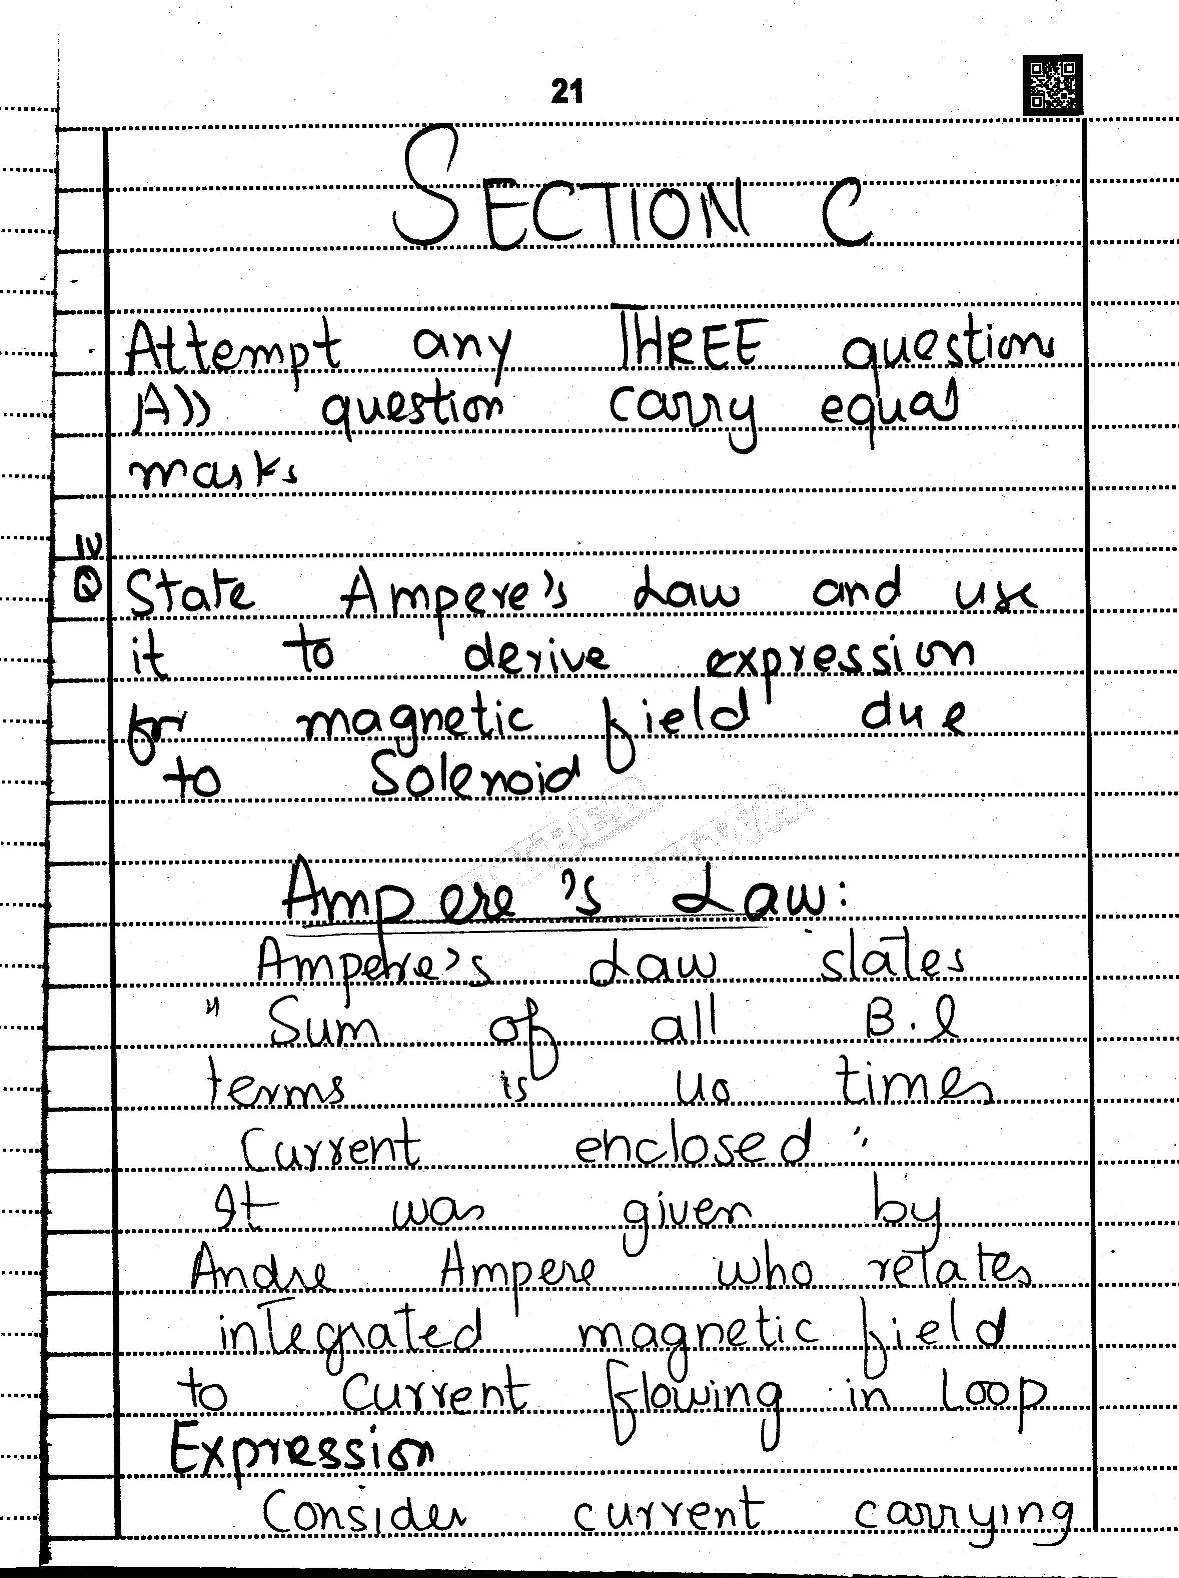 21
SECTION C
Attempt any THREE question
All question carry equal
marks
IV
Q State Ampere's Law and use
it to derive expression
for magnetic field due
to Solenoid
Ampere's Law:
Ampere's Law states
"Sum of all B.l
terms is uo times
Current enclosed"
It was given by
Andre Ampere who relates
integrated magnetic field
to current flowing in Loop
Expression
Consider current carrying